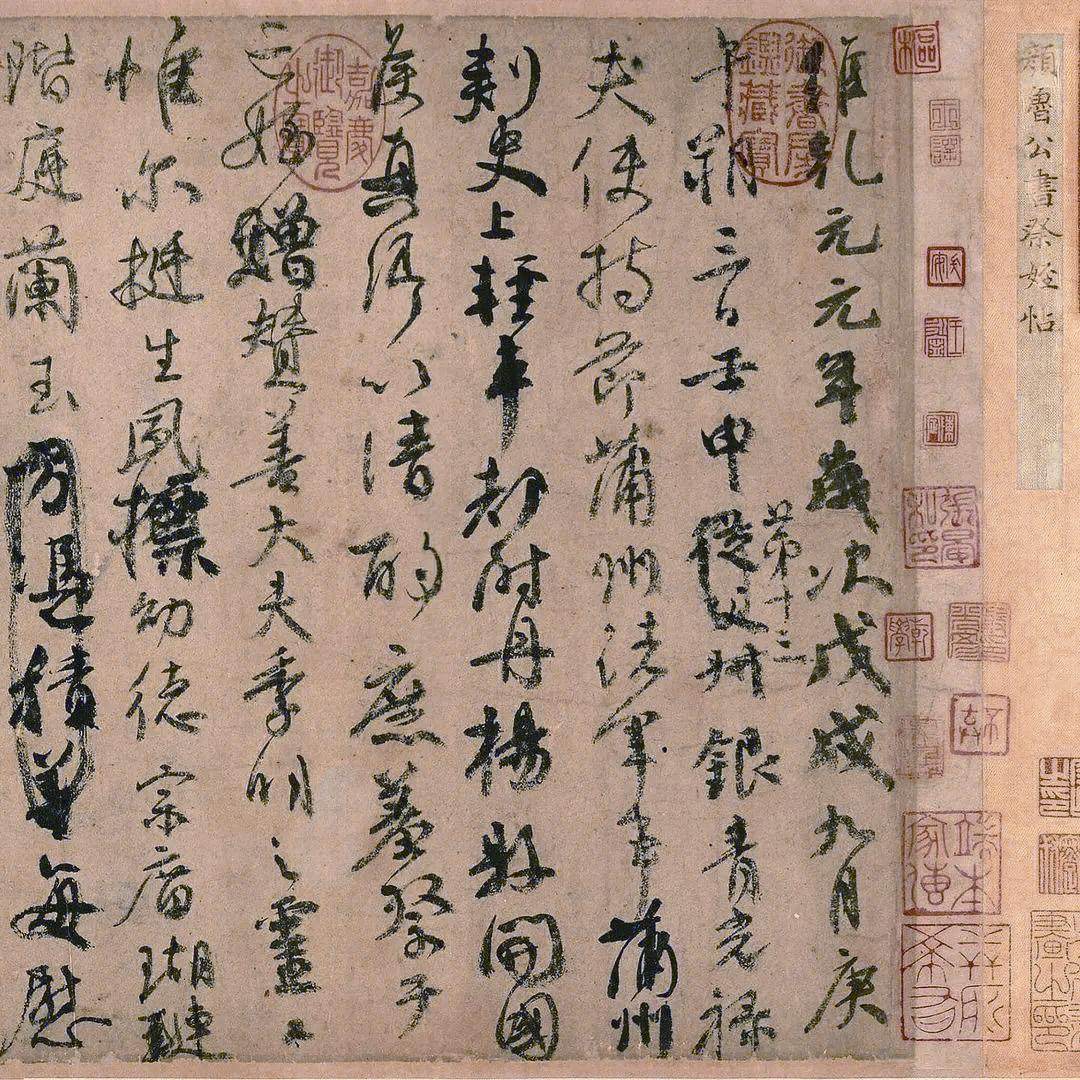 顏魯公書祭姪帖
維乾元元年歲次戊戌九月庚
午朔三日壬申從父叔銀青光祿
第十三
夫使持節蒲州諸軍事蒲州
刺史上輕車都尉丹楊縣開國
侯真卿以清酌庶羞祭于
亡姪贈贊善大夫季明之靈曰
惟尔挺生夙標幼德宗廟瑚璉
階庭蘭玉方憑積善每慰
御書房鑑藏寶
嘉慶御覽之寶
樞